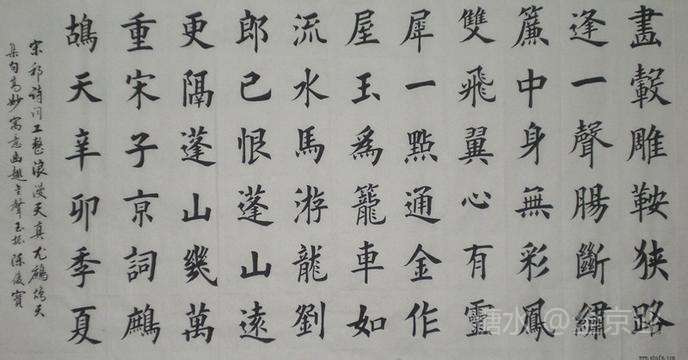 畫轂雕鞍狹路
逢一聲腸斷繡
簾中身無彩鳳
雙飛翼心有靈
犀一點通金作
屋玉爲籠車如
流水馬游龍劉
郎已恨蓬山遠
更隔蓬山幾萬
重宋子京詞鷓
鴣天辛卯季夏
宋祁詩詞工整浪漫天真尤鷓鴣天
集句高妙寓意幽趣聲玉振陳
糖水@